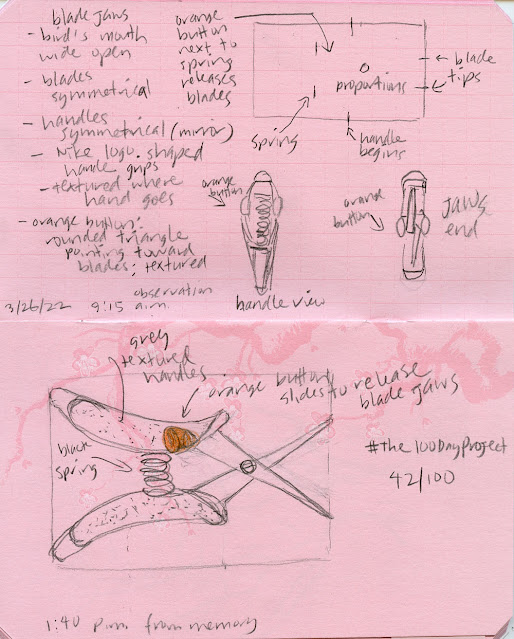 blade jaws
- bird's mouth
wide open
- blades
symmetrical
- handles
symmetrical (mirror)
- Nike logo-shaped
handle grips
- textured where
hand goes
- orange button:
rounded triangle
pointing toward
blades; textured
3/26/22 9:15 a.m. observation
orange
button
next to
spring
releases
blades
proportions
blade
tips
spring
handle
begins
orange
button
handle view
orange
button
jaws
end
grey
textured
handles
orange button
slides to release
blade jaws
black
spring
#the100DayProject
42/100
1:40 p.m. from memory